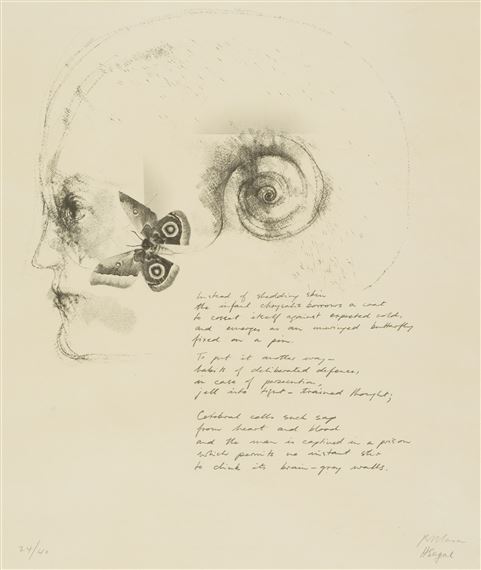 Instead of shedding skin
the infant chrysalis borrows a coat
to covet itself against expected cold,
and emerges as an unwinged butterfly
fixed on a pin.
To put it another way—
habits of deliberated defence,
in case of persecution,
jell into tight-trained thought;
Cerebral cells such sap
from heart and blood
and the man is captived in a prison
which permits no instant stir
to chink its brain-gray walls.
24/40
H Segal